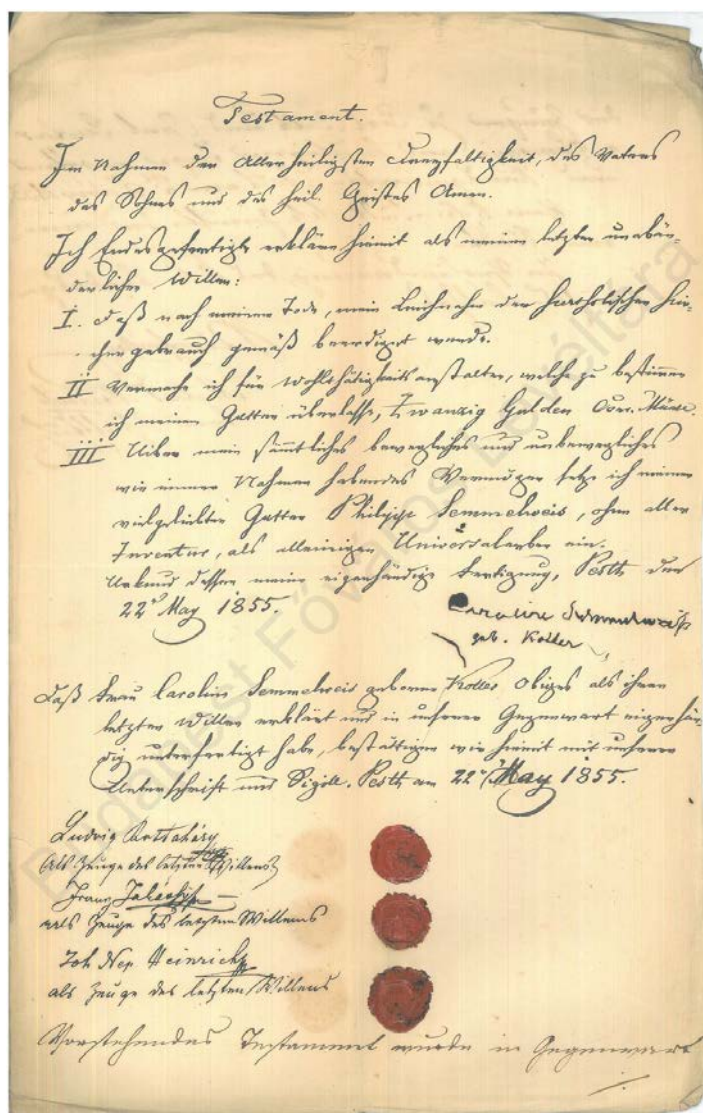 Testament.
Im Nahmen der Allerheiligsten Dreyfaltigkeit, des Vaters
des Sohnes und des heil. Geistes Amen.
Ich Endesgefertigte erkläre hiemit als meinen letzten unabän-
derlichen Willen:
I. Daß nach meinem Tode, mein Leichnahm der katholischen Kir-
chengebrauch gemäß beerdiget werde.
II Vermache ich für Wohlthätigkeitsanstalten, welche zu bestimmen
ich meinem Gatten überlasse, Zwanzig Gulden Conv. Münze.
III Uiber mein sämmtliches bewegliches und unbewegliches
wie immer Nahmen habendes Vermögen setze ich meinen
vielgeliebten Gatten Philipp Semmelweis, ohne aller
Inventur, als alleinigen Universalerben ein.
Urkund dessen meine eigenhändige Fertigung, Pesth den
22t May 1855.
Caroline Semmelweis
geb. Koller
Daß Frau Caroline Semmelweis geborne Koller Obiges als ihren
letzten Willen erklärt und in unserer Gegenwart eigenhän-
dig unterfertigt habe, bestättigen wir hiemit mit unserer
Unterschrift und Sigill. Pesth am 22t May 1855.
Ludwig
als Zeuge des letzten Willens
Franz
als Zeuge des letzten Willens
Joh Nep. Heinrich
als Zeuge des letzten Willens
Vorstehendes Testament wurde in Gegenwart
Budapest Főváros Levéltára